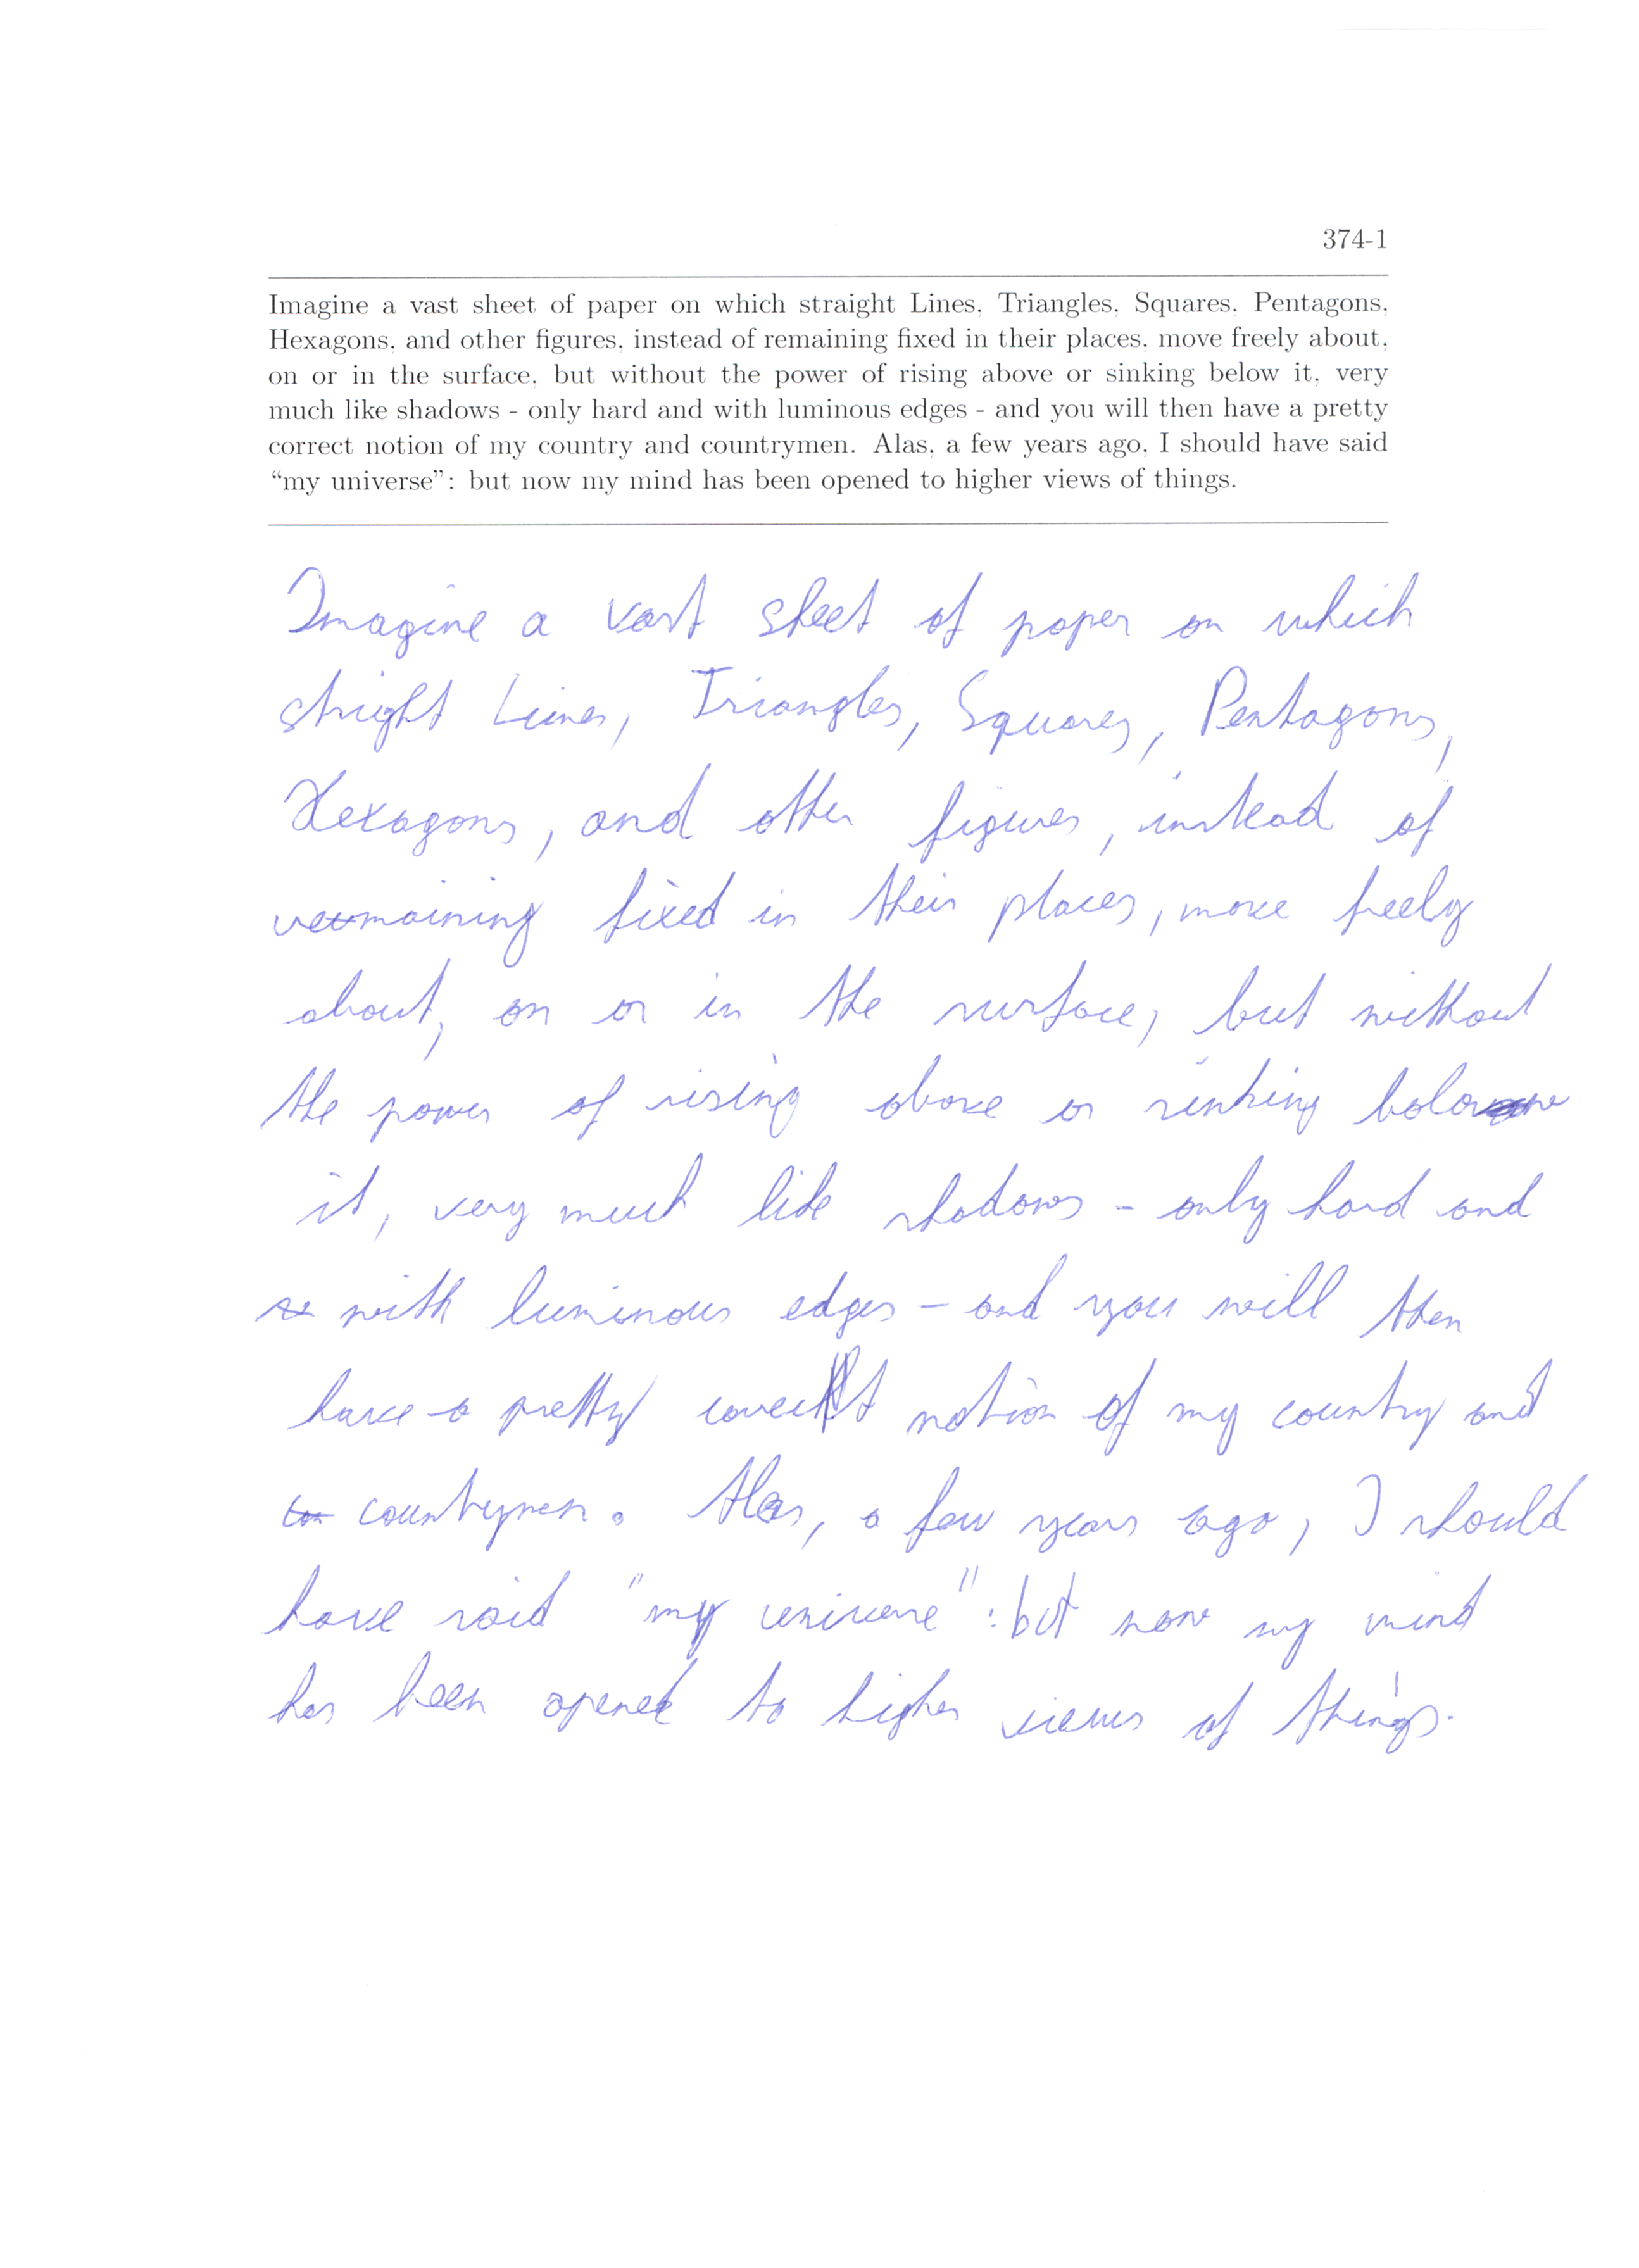 374-1
Imagine a vast sheet of paper on which straight Lines, Triangles, Squares, Pentagons,
Hexagons, and other figures, instead of remaining fixed in their places, move freely about,
on or in the surface, but without the power of rising above or sinking below it, very
much like shadows - only hard and with luminous edges - and you will then have a pretty
correct notion of my country and countrymen. Alas, a few years ago, I should have said
“my universe”: but now my mind has been opened to higher views of things.
Imagine a vast sheet of paper on which
stright Lines, Triangles, Squares, Pentagons,
Hexagons, and other figures, instead of
remaining fixed in their places, move freely
about, on or in the surface, but without
the power of rising above or sinking bolow
it, very much like shadows - only hard and
with luminous edges - and you will then
have a pretty correct notion of my country and
countrymen. Alas, a few years ago, I should
have said "my universe": but now my mind
has been opened to higher views of things.